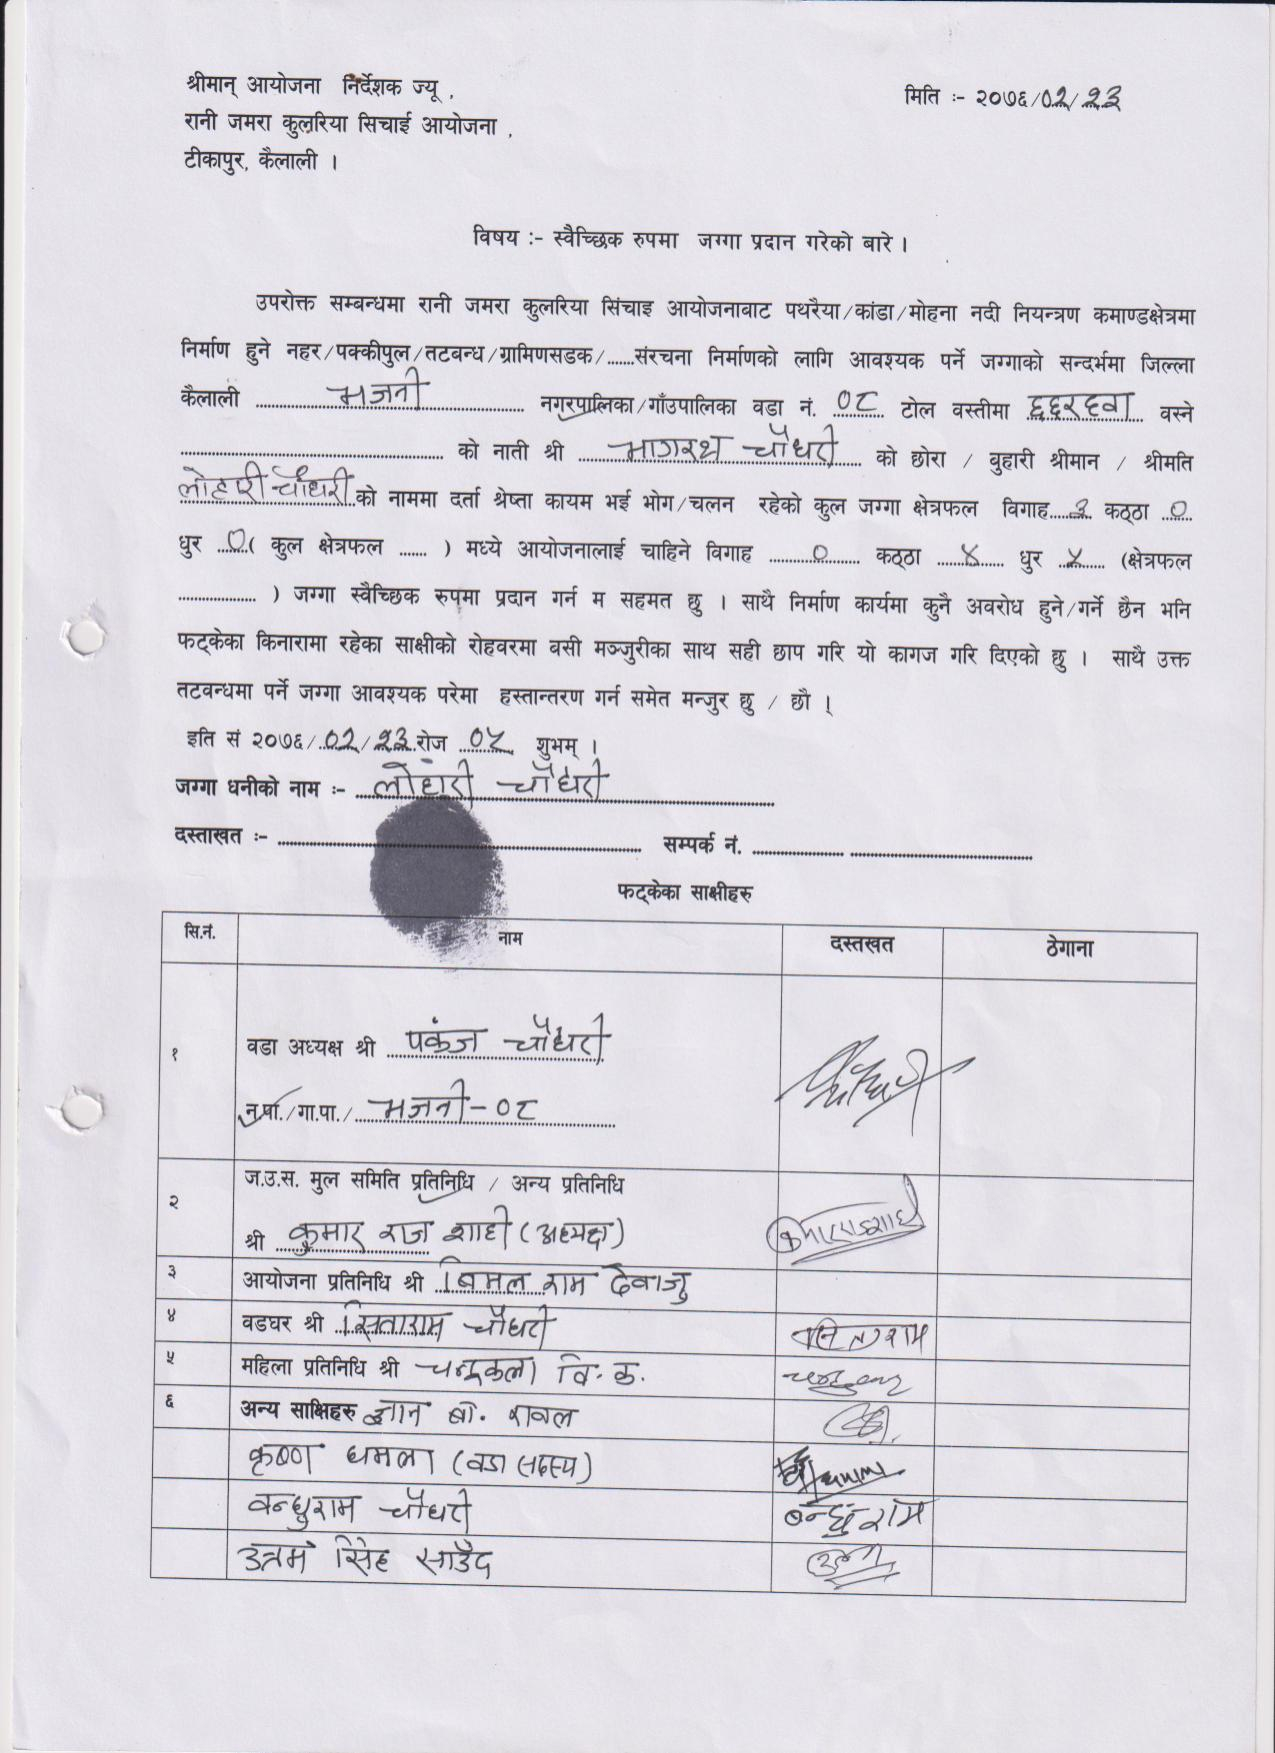 श्रीमान् आयोजना निर्देशक ज्यू ,
मिति :- २०७६/०२/२३
रानी जमरा कुलरिया सिचाई आयोजना ,
टीकापुर, कैलाली ।
विषय :- स्वैच्छिक रुपमा जग्गा प्रदान गरेको बारे ।
उपरोक्त सम्बन्धमा रानी जमरा कुलरिया सिंचाइ आयोजनाबाट पथरैया/कांडा/मोहना नदी नियन्त्रण कमाण्डक्षेत्रमा
निर्माण हुने नहर/पक्कीपुल/तटबन्ध/ग्रामिणसडक/.......संरचना निर्माणको लागि आवश्यक पर्ने जग्गाको सन्दर्भमा जिल्ला
कैलाली भजनी नगरपालिका/गाँउपालिका वडा नं. ०८ टोल वस्तीमा वस्ने
को नाती श्री भागरथ चौधरी को छोरा / बुहारी श्रीमान / श्रीमति
लोहारी चौधरी को नाममा दर्ता श्रेष्ता कायम भई भोग/चलन रहेको कुल जग्गा क्षेत्रफल विगाह कठ्ठा ०
धुर ०( कुल क्षेत्रफल ...... ) मध्ये आयोजनालाई चाहिने विगाह ० कठ्ठा ४ धुर (क्षेत्रफल
.................. ) जग्गा स्वैच्छिक रुपमा प्रदान गर्न म सहमत छु । साथै निर्माण कार्यमा कुनै अवरोध हुने/गर्ने छैन भनि
फट्केका किनारामा रहेका साक्षीको रोहवरमा वसी मञ्जुरीका साथ सही छाप गरि यो कागज गरि दिएको छु । साथै उक्त
तटवन्धमा पर्ने जग्गा आवश्यक परेमा हस्तान्तरण गर्न समेत मन्जुर छु / छौ ।
इति सं २०७६/०२/२३ रोज ०५ शुभम् ।
जग्गा धनीको नाम :- लोहारी चौधरी
दस्ताखत :- सम्पर्क नं.
फट्केका साक्षीहरु
सि.नं. नाम दस्तखत ठेगाना
१ वडा अध्यक्ष श्री पकंज चौधरी
न.पा./गा.पा./ भजनी-०८
२ ज.उ.स. मुल समिति प्रतिनिधि / अन्य प्रतिनिधि
श्री कुमार राज शाही (अध्यक्ष)
३ आयोजना प्रतिनिधि श्री बिमल राम देवाजु
४ वडघर श्री सिताराम चौधरी सिताराम
५ महिला प्रतिनिधि श्री चन्द्रकला वि. क.
६ अन्य साक्षिहरु ज्ञान ब. रावल
कृष्ण धमला (वडा सदस्य)
वन्धुराम चौधरी बन्धुराम
उत्रम सिंह साउँद